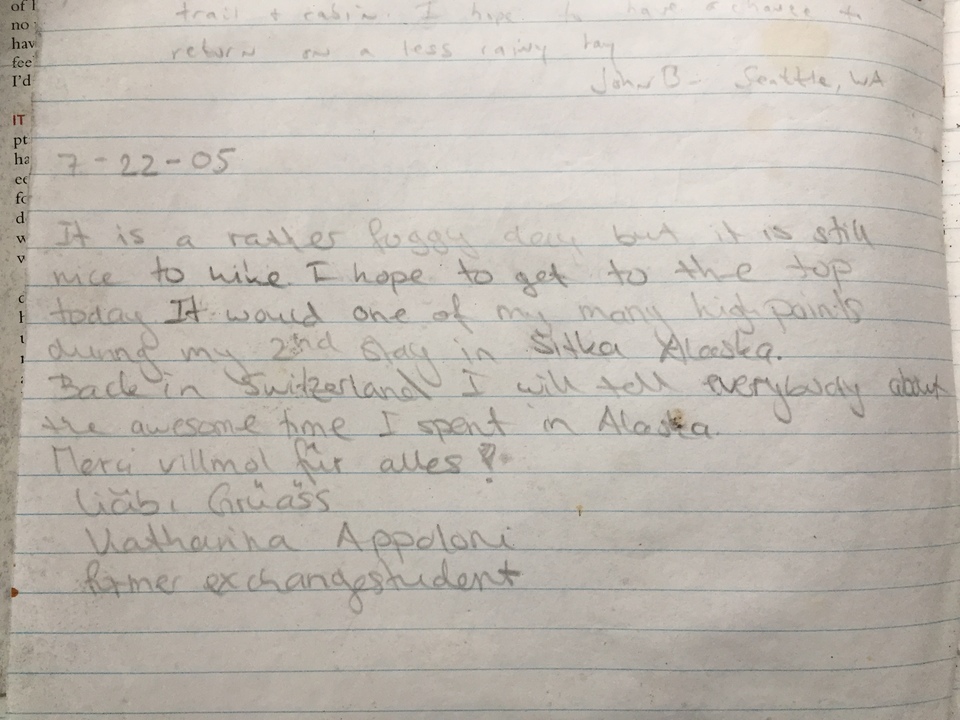 of
no
hav
fee
I'd
IT
pt
ha
trail + cabin. I hope to have a chance to
return on a less rainy day
John B - Seattle, WA
7-22-05
It is a rather foggy day but it is still
nice to hike I hope to get to the top
today It would one of my many highpoints
during my 2nd stay in Sitka Alaska.
Back in Switzerland I will tell everybody about
the awesome time I spent in Alaska.
Merci villmol für alles!
Liäbi Grüäss
Katharina Appoloni
former exchangestudent